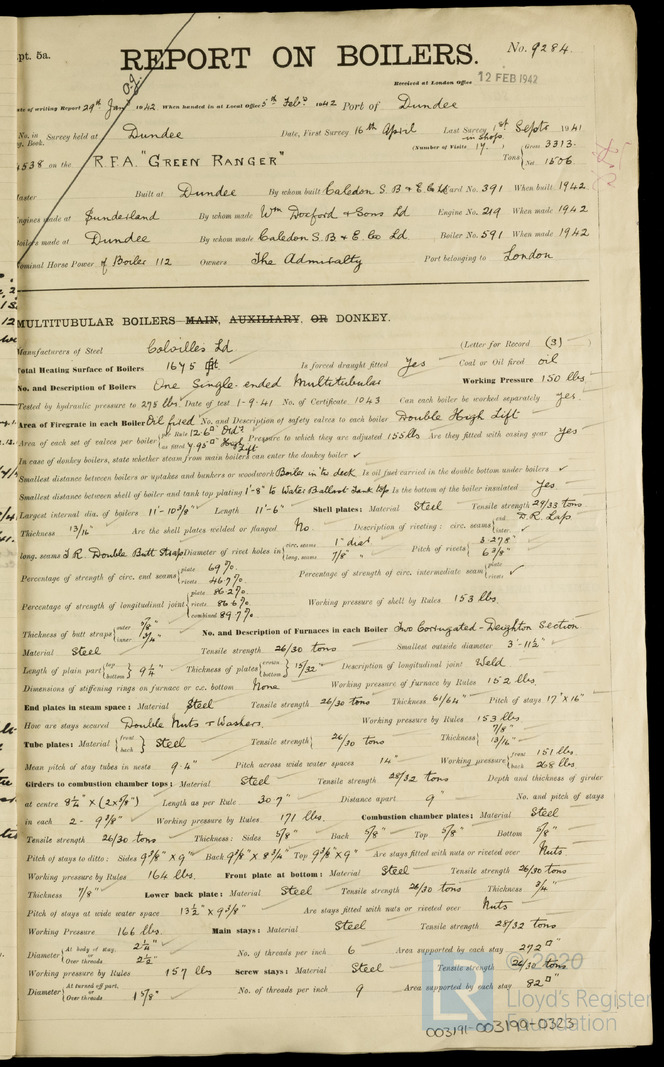 pt. 5a.
REPORT ON BOILERS. No. 9284.
Received at London Office 12 FEB 1942
ate of writing Report 29th Jan 1942. When handed in at Local Office 5th Feb 1942 Port of Dundee
No. in Survey held at Dundee Date, First Survey 16th April Last Survey 1st Septr 1941
g. Book. in shops. (Number of Visits 17.
4538 on the R.F.A. "GREEN RANGER" Tons Gross 3313. Net 1506
aster Built at Dundee By whom built Caledon S.B & E Co Ld Yard No. 391 When built 1942
ngines made at Sunderland By whom made Wm Doxford & Sons Ld Engine No. 219 When made 1942
oilers made at Dundee By whom made Caledon S.B & E. Co Ld. Boiler No. 591 When made 1942
ominal Horse Power of Boiler 112 Owners The Admiralty Port belonging to London
MULTITUBULAR BOILERS MAIN, AUXILIARY, OR DONKEY.
Manufacturers of Steel Colvilles Ld (Letter for Record (3)
Total Heating Surface of Boilers 1675 Is forced draught fitted yes Coal or Oil fired oil
No. and Description of Boilers One Single-ended Multitubular Working Pressure 150 lbs
Tested by hydraulic pressure to 278 lbs Date of test 1-9-41 No. of Certificate 1043 Can each boiler be worked separately yes
Area of Firegrate in each Boiler Oil fired No. and Description of safety valves to each boiler Double High Lift
Area of each set of valves per boiler per Rule 12.6 as fitted 7.95 High Lift Pressure to which they are adjusted 155 lbs Are they fitted with easing gear yes
In case of donkey boilers, state whether steam from main boilers can enter the donkey boiler ✓
Smallest distance between boilers or uptakes and bunkers or woodwork Boiler in 'tw deck Is oil fuel carried in the double bottom under boilers ✓
Smallest distance between shell of boiler and tank top plating 1'-8" to Water Ballast Tank top Is the bottom of the boiler insulated yes
Largest internal dia. of boilers 11'-10 3/8" Length 11'-6" Shell plates: Material Steel Tensile strength 29/33 tons
Thickness 13/16" Are the shell plates welded or flanged No Description of riveting: circ. seams end D.R. Laps inter. ✓
long. seams T.R Double Butt Straps Diameter of rivet holes in circ. seams 1" long. seams 7/8" Pitch of rivets 3.278" 6 3/8"
Percentage of strength of circ. end seams plate 69% rivets 46.7% Percentage of strength of circ. intermediate seam plate rivets ✓
Percentage of strength of longitudinal joint plate 86.2% rivets 86.6% combined 89.7% Working pressure of shell by Rules 153 lbs.
Thickness of butt straps outer 5/8" inner 3/4" No. and Description of Furnaces in each Boiler Two Corrugated-Deighton Section
Material Steel Tensile strength 26/30 tons Smallest outside diameter 3'-11 1/2"
Length of plain part top bottom 9 1/4" Thickness of plates crown bottom 15/32" Description of longitudinal joint Weld
Dimensions of stiffening rings on furnace or c.c. bottom None Working pressure of furnace by Rules 152 lbs.
End plates in steam space: Material Steel Tensile strength 26/30 tons Thickness 61/64" Pitch of stays 17" x 16"
How are stays secured Double Nuts & Washers. Working pressure by Rules 153 lbs
Tube plates: Material front back Steel Tensile strength 26/30 tons Thickness 7/8" 13/16"
Mean pitch of stay tubes in nests 9.4" Pitch across wide water spaces 14" Working pressure front 151 lbs back 268 lbs
Girders to combustion chamber tops: Material Steel Tensile strength 28/32 tons Depth and thickness of girder
at centre 8 1/2" x (2 x 5/8") Length as per Rule 30.7" Distance apart 9" No. and pitch of stays
in each 2 - 9 3/8" Working pressure by Rules 171 lbs. Combustion chamber plates: Material Steel
Tensile strength 26/30 tons Thickness: Sides 5/8" Back 5/8" Top 5/8" Bottom 5/8"
Pitch of stays to ditto: Sides 9 3/8" x 9" Back 9 3/8" x 8 3/4" Top 9 3/8" x 9" Are stays fitted with nuts or riveted over Nuts
Working pressure by Rules 164 lbs. Front plate at bottom: Material Steel Tensile strength 26/30 tons
Thickness 7/8" Lower back plate: Material Steel Tensile strength 26/30 tons Thickness 3/4"
Pitch of stays at wide water space 13 1/2" x 9 3/8" Are stays fitted with nuts or riveted over Nuts
Working Pressure 166 lbs. Main stays: Material Steel Tensile strength 28/32 tons
Diameter At body of stay, or Over threads 2 1/4" 2 1/2" No. of threads per inch 6 Area supported by each stay 272
Working pressure by Rules 157 lbs Screw stays: Material Steel Tensile strength 26/30 tons
Diameter At turned off part, or Over threads 1 5/8" No. of threads per inch 9 Area supported by each stay 82
© 2020
LR Lloyd's Register Foundation
003191-003199-0323